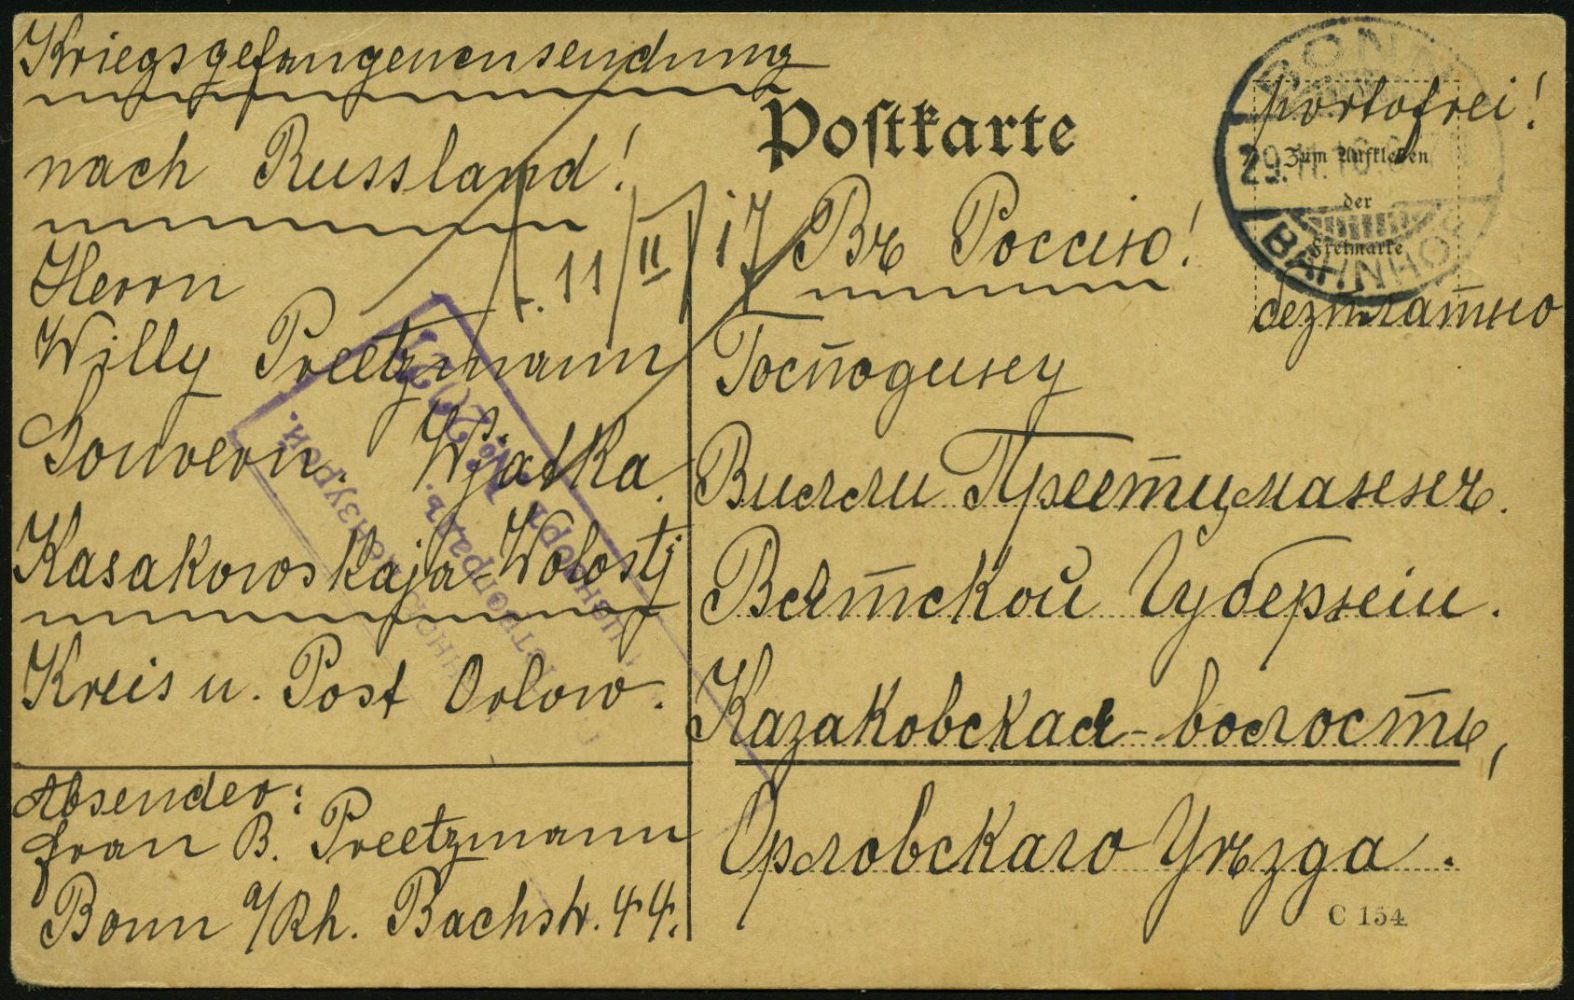 Kriegsgefangenensendung
nach Russland!
Herrn
Willy Preetzmann
Gouvern. Wjatka.
Kasakowskaja-Wolostj
Kreis u. Post Orlow.
Absender:
Frau B. Preetzmann
Bonn a/Rh. Bachstr. 44.
Postkarte
11/II 17
Въ Россію!
Господину
Вилли Преетцманнъ.
Вятской Губерніи.
Казаковская-волость,
Орловскаго Уѣзда.
C 154
portofrei!
Zum Aufkleben
der
Freimarke
безплатно
BONN
29.11.16.
BAHNHOF